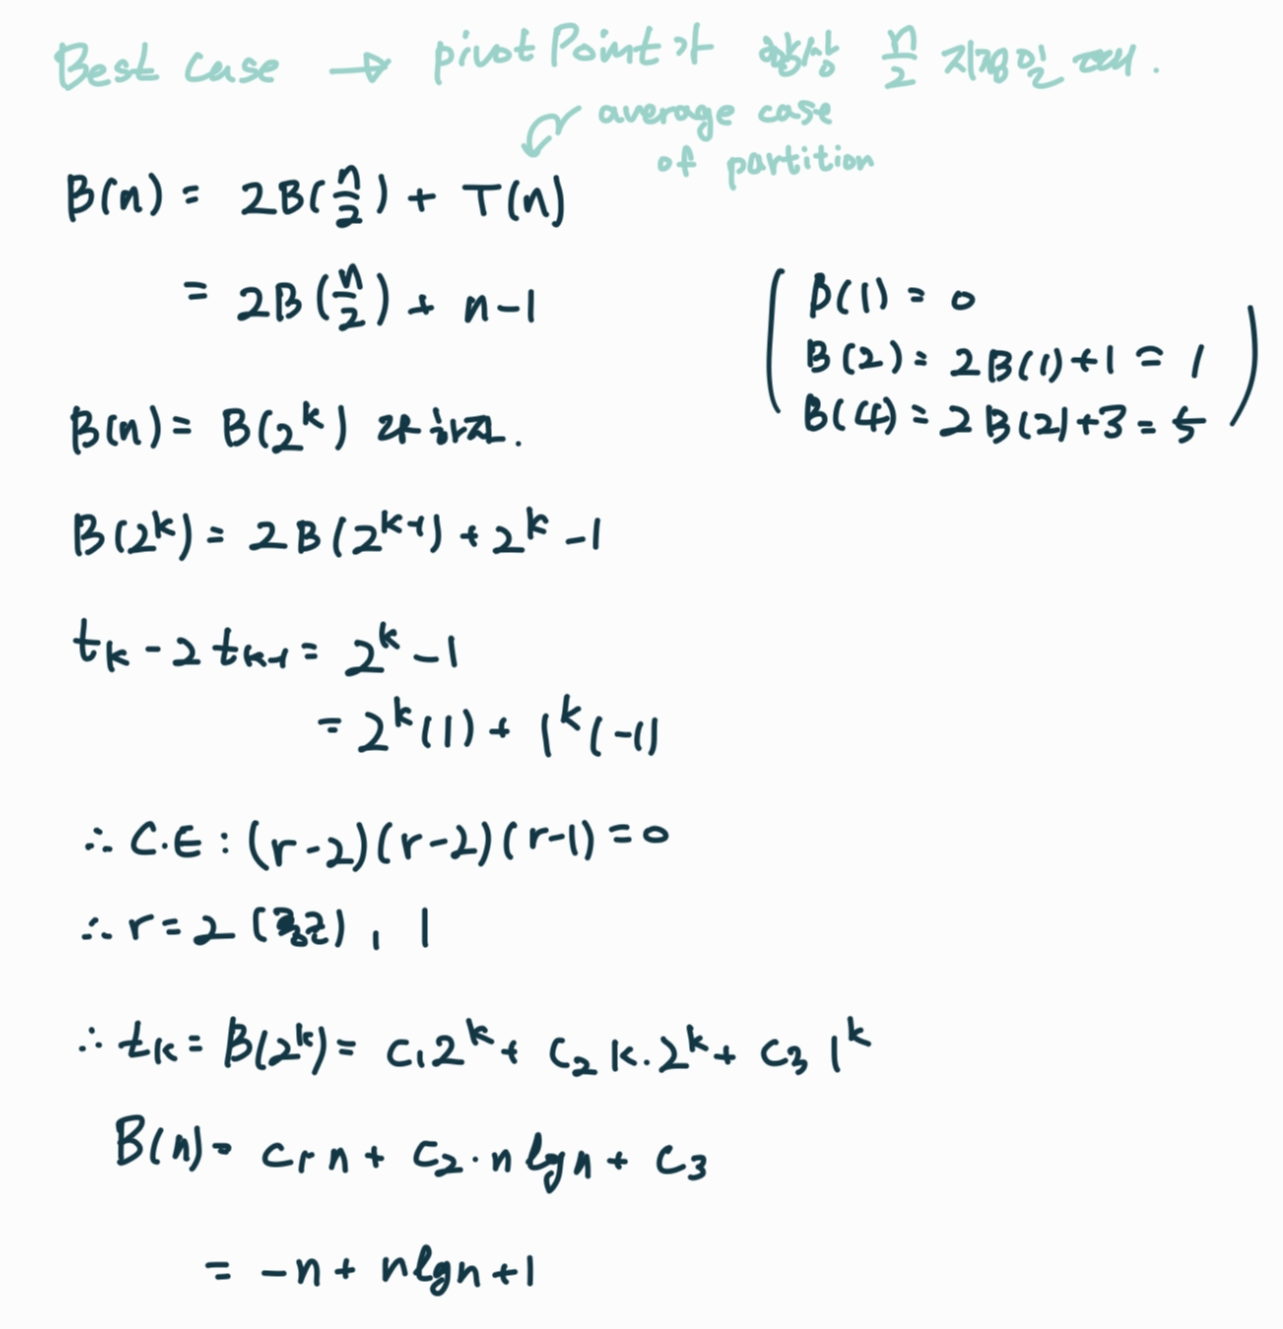 Best case → pivot Point가 항상 n/2 지점일 때.
average case
of partition
B(n) = 2B(n/2) + T(n)
= 2B(n/2) + n-1
B(1) = 0
B(2) = 2B(1)+1 = 1
B(4) = 2B(2)+3 = 5
B(n) = B(2^k) 라 하자.
B(2^k) = 2B(2^k-1) + 2^k -1
t_k - 2t_k-1 = 2^k -1
= 2^k(1) + 1^k(-1)
∴ C.E : (r-2)(r-2)(r-1) = 0
∴ r = 2 (중근), 1
∴ t_k = B(2^k) = c_1 2^k + c_2 k·2^k + c_3 1^k
B(n) = c_1 n + c_2·n lg n + c_3
= -n + n lg n + 1